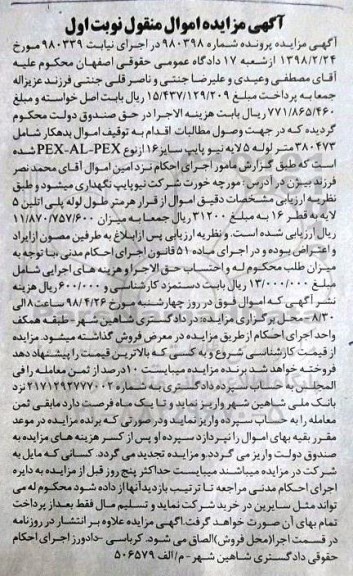 آگهی مزایده اموال منقول نوبت اول
آگهی مزایده پرونده شماره ۹۸۰۳۹۸ در اجرای نیابت ۹۸۰۳۳۹ مورخ
۱۳۹۸/۲/۲۴ از شعبه ۱۷ دادگاه عمومی حقوقی اصفهان محکوم علیه
آقای مصطفی وعیدی و علیرضا جنتی و ناصر قلی جنتی فرزند عزیزاله
جمعا به پرداخت مبلغ ۱۵/۴۳۷/۱۲۹/۲۰۹ ریال بابت اصل خواسته و مبلغ
۷۷۱/۸۶۵/۴۶۰ ریال بابت هزینه الاجرا در حق صندوق دولت محکوم
گردیده که در جهت وصول مطالبات اقدام به توقیف اموال بدهکار شامل
۳۸۰۴۷۳ متر لوله ۵ لایه نیو پایپ سایز ۱۶ از نوع PEX-AL-PEX شده
است که طبق گزارش مامور اجرای احکام نزد امین اموال آقای محمد نصر
فرزند بیژن در آدرس: مورچه خورت شرکت نیوپایپ نگهداری میشود و طبق
نظریه ارزیابی مشخصات دقیق اموال از قرار هر متر طول لوله پلی اتلین ۵
لایه به قطر ۱۶ به مبلغ ۳۱۲۰۰ ریال جمعا به میزان ۱۱/۸۷۰/۷۵۷/۶۰۰
ریال ارزیابی شده است. و نظریه ارزیابی پس از ابلاغ به طرفین مصون از ایراد
و اعتراض بوده و در اجرای ماده ۵۱ قانون اجرای احکام مدنی با توجه به
میزان طلب محکوم له و احتساب حق الاجرا و هزینه های اجرایی شامل
مبلغ ۱۳/۰۰۰/۰۰۰ ریال بابت دستمزد کارشناسی و ۶۰۰/۰۰۰ ریال هزینه
نشر آگهی که اموال فوق در روز چهارشنبه مورخ ۹۸/۴/۲۶ ساعت ۸ الی
۸/۳۰- محل برگزاری مزایده: در دادگستری شاهین شهر - طبقه همکف
واحد اجرای احکام از طریق مزایده در معرض فروش گذاشته میشود. مزایده
از قیمت کارشناسی شروع و به کسی که بالاترین قیمت را پیشنهاد دهد
فروخته خواهد شد برنده مزایده میبایست ۱۰ درصد از ثمن معامله را فی
المجلس به حساب سپرده دادگستری به شماره ۲۱۷۱۲۹۲۷۷۷۰۰۲ نزد
بانک ملی شاهین شهر واریز نماید و تا یک ماه فرصت دارد مابقی ثمن
معامله را به حساب سپرده واریز نماید و در صورتی که برنده مزایده در موعد
مقرر بقیه بهای اموال را نپردازد سپرده او پس از کسر هزینه های مزایده به
صندوق دولت واریز می گردد و مزایده تجدید می گردد. کسانی که مایل به
شرکت در مزایده میباشند میبایست حداکثر پنج روز قبل از مزایده به دایره
اجرای احکام مدنی مراجعه تا ترتیب بازدید آنها از داده شود محکوم له می
تواند مثل سایرین در خرید شرکت نماید و تسلیم مال فقط بعد از پرداخت
تمام بهای آن صورت خواهد گرفت. آگهی مزایده علاوه بر انتشار در روزنامه
در قسمت اجرا (محل فروش) الصاق می شود. کرباسی - دادورز اجرای احکام
حقوقی دادگستری شاهین شهر - م / الف ۵۰۶۵۷۹